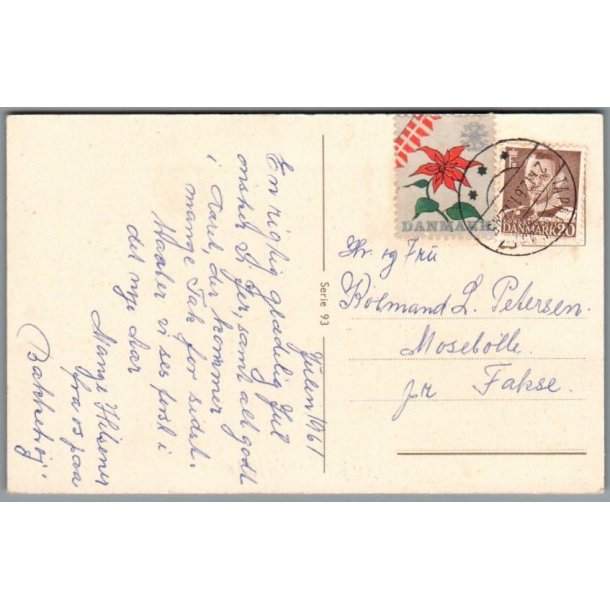 Julen 1961
En rigtig glædelig Jul
ønsker vi Jer, samt alt godt
i Aaret, der kommer
mange Tak for sidst.
Haaber vi ses først i
det nye Aar
Mange Hilsener
fra os paa
Bakkehøj
Serie 93
DANMARK
DANMARK 20
Hr. og Fru
Købmand L. Petersen.
Mosebølle
pr Fakse.